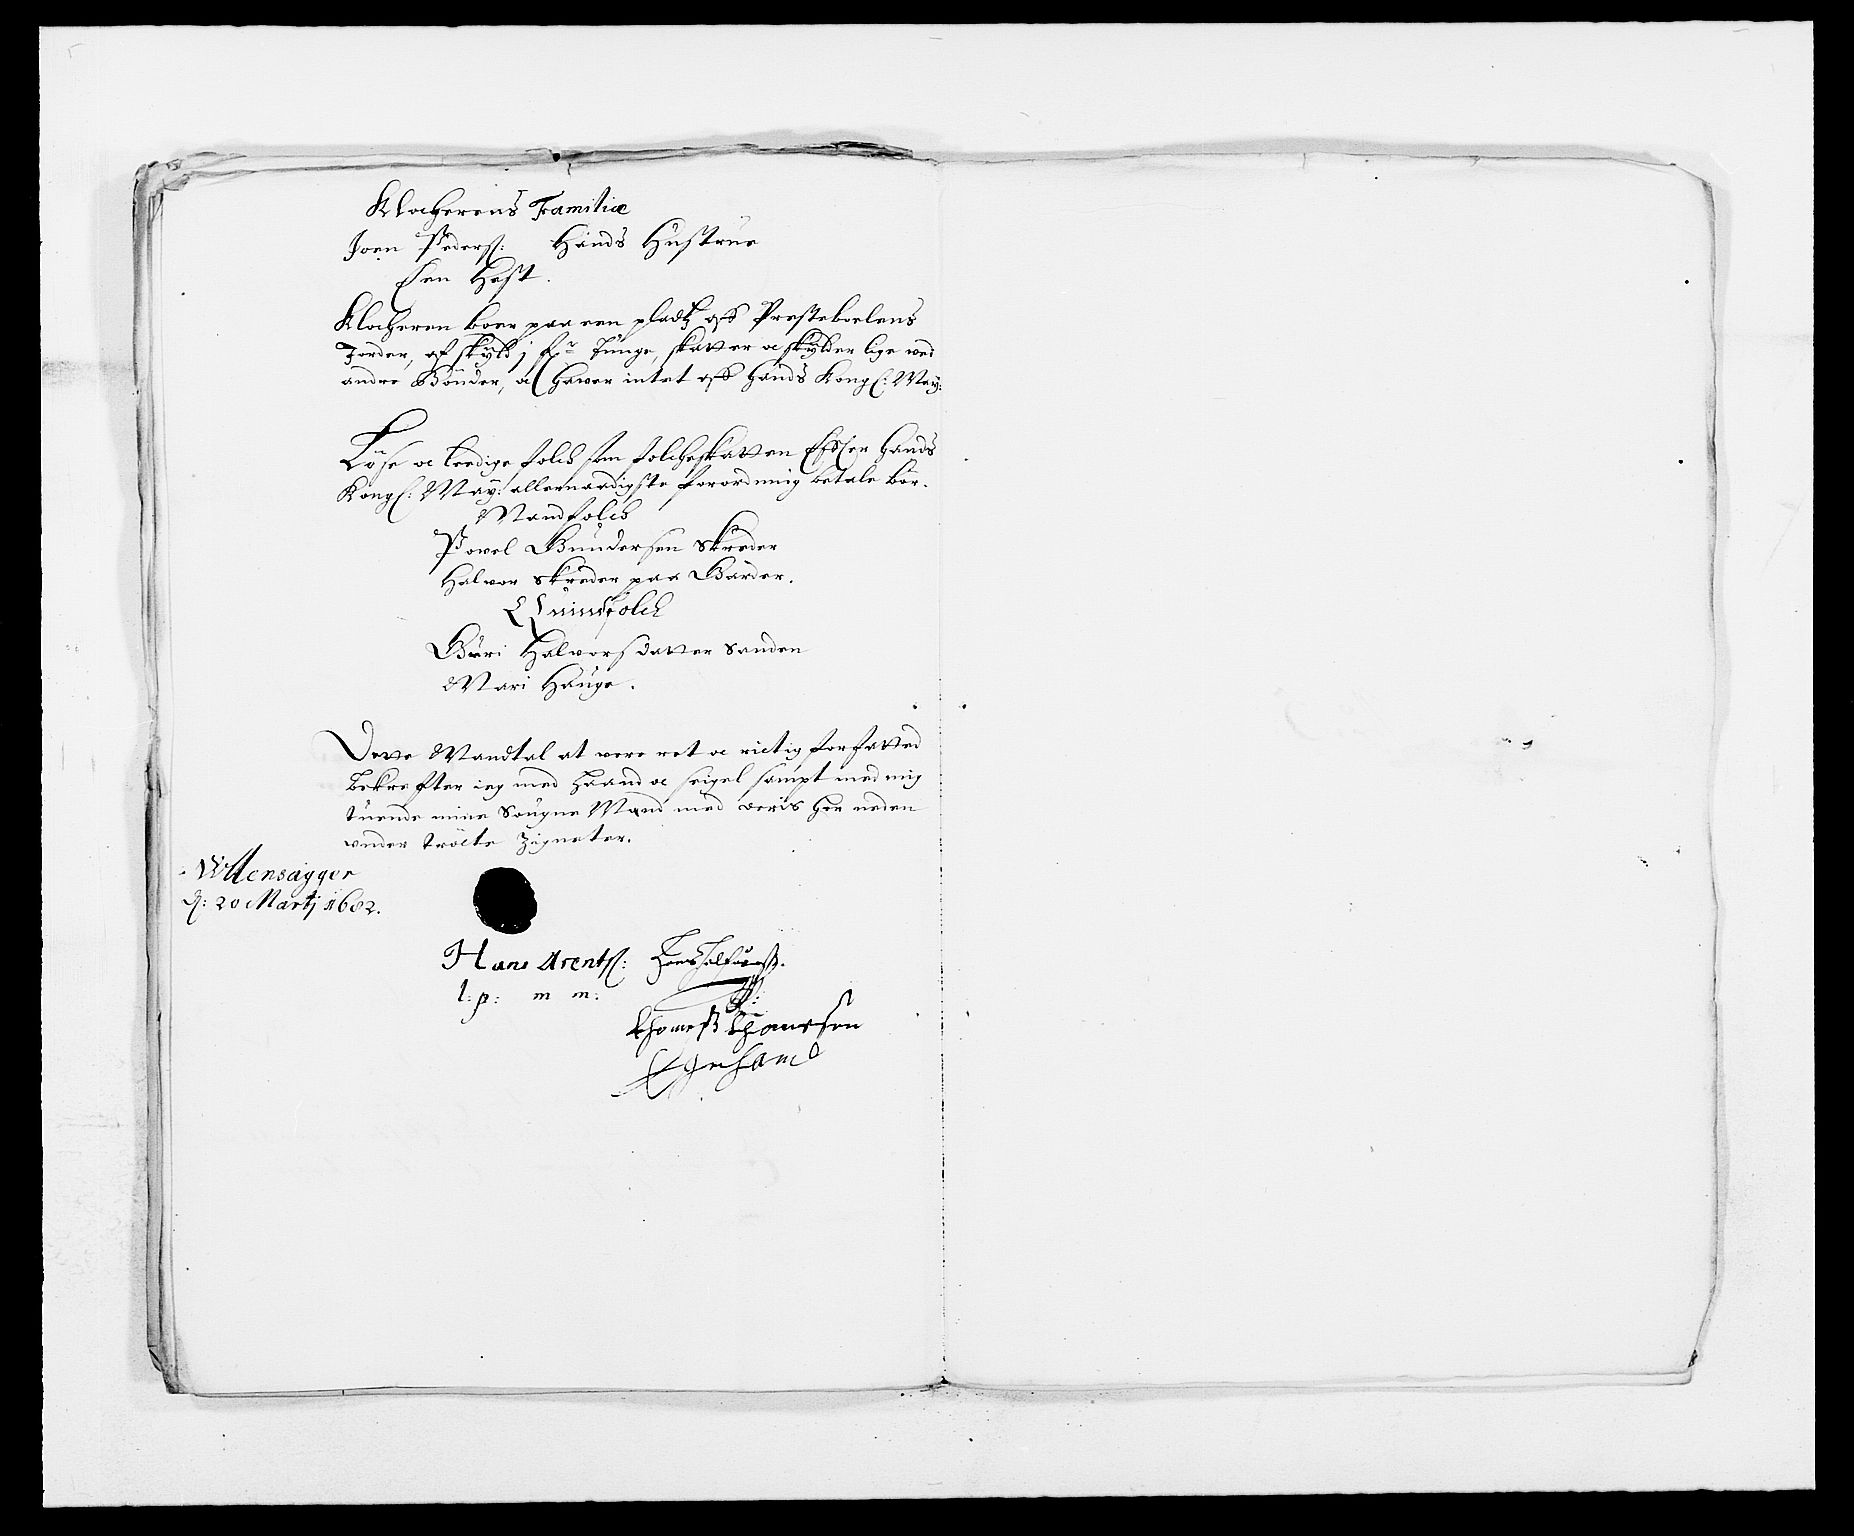 Klocherens Familiæ
Joen Peders: Hands Hustrue
Een Hest.
Klocheren boer paa een pladtz off Prestebolens
Jorder, af skyld j fr. Tunge, skatter oc skylder lige ved
andre Bönder, oc hawer intet off hands Kongl: May:
Löse oc ledige folch som folcheskatten Effter Hands
Kongl: May: allernaadigste forordning betale bör.
Mandfolch
Povel Gundersen Skreder
Halvor Skreder paa Garder.
Quindfolch
Guri Halvorsdatter Sanden
Mari Hauge.
Dette Mandtal at vere ret oc rictig forfatted
bekrefter ieg med Haand oc seigel sampt med mig
tuende mine Sougne Mænd med deris her neden
under tröcte Zigneter.
Uttensagger
d: 20 Martj 1682.
Hans Arents:
l: p: m m:
Thomes Thomessen
Egenhand